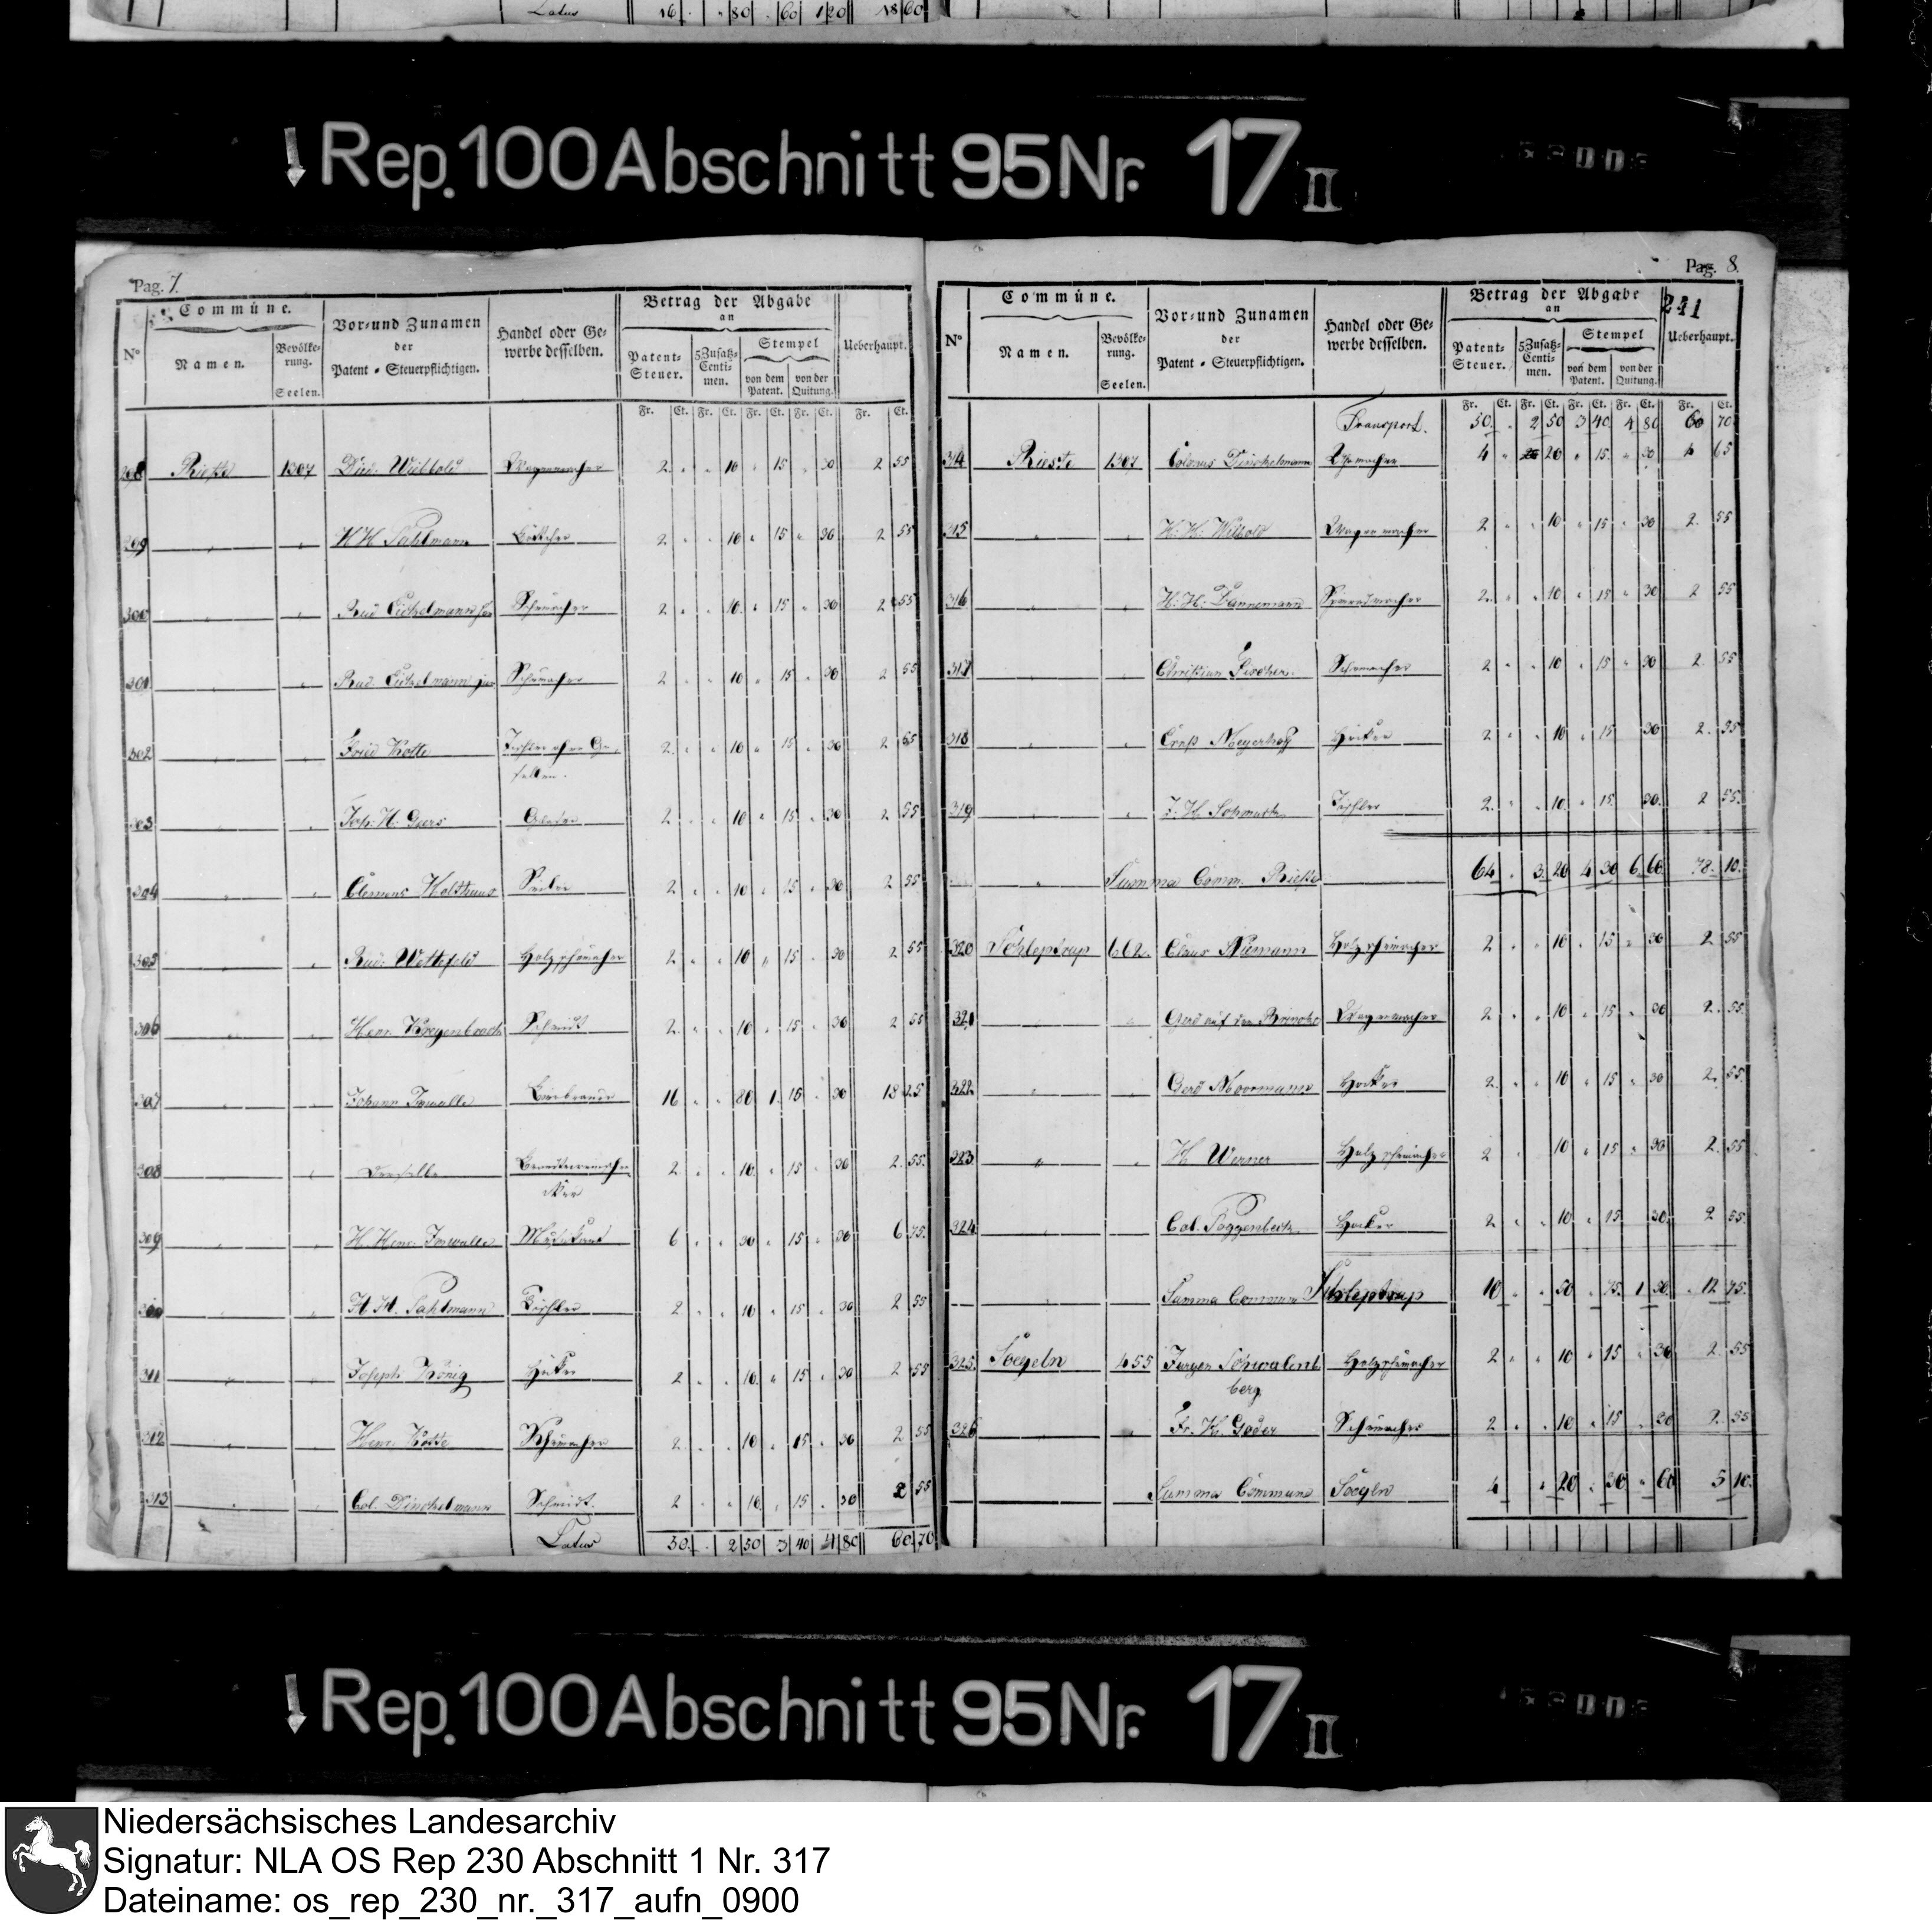 Latus 16 . " 80 . 60 1 20 18 60
Rep. 100 Abschnitt 95 Nr. 17 II
Pag. 7.
N° Commüne. Vor- und Zunamen der Patent-Steuerpflichtigen. Handel oder Gewerbe desselben. Betrag der Abgabe an Ueberhaupt.
Namen. Bevölkerung. Seelen. Patent-Steuer. 5 Zusatz-Centimen. Stempel von dem Patent. von der Quitung.
Fr. Ct. Fr. Ct. Fr. Ct. Fr. Ct. Fr. Ct.
298 Rieste 1307 Died: Wilbold Wagenmacher 2 " " 10 " 15 " 30 2 55
299 " " HH Pahlmann Böttcher 2 " " 10 " 15 " 30 2 55
300 " " Rud Eickelmann sen Schumacher 2 " " 10 " 15 " 30 2 55
301 " " Rud. Eickelmann jun Schumacher 2 " " 10 " 15 " 30 2 55
302 " " Fried Kotte Tischler ohne Ge-
sellen. 2 " " 10 " 15 " 30 2 55
303 " " Joh: H: Geers 2 " " 10 " 15 " 30 2 55
304 " " Clemens Holthaus 2 " " 10 " 15 " 30 2 55
305 " " Rud: Wettefeld Holzschumacher 2 " " 10 " 15 " 30 2 55
306 " " Henr. Kreyenbrock Schmidt 2 " " 10 " 15 " 30 2 55
307 " " Johann Bierbrauer 16 " " 80 1 15 " 30 18 25
308 " " Derselbe 2 " " 10 " 15 " 30 2 55
309 " " H. Henr. Musikant 6 " " 30 " 15 " 30 6 75
310 " " H H. Pahlmann Tischler 2 " " 10 " 15 " 30 2 55
311 " " Joseph König Höker 2 " " 10 " 15 " 30 2 55
312 " " Henr. Kotte Schumacher 2 " " 10 " 15 " 30 2 55
313 " " Col. Dinckelmann Schmidt. 2 " " 10 " 15 " 30 2 55
Latus 50 . 2 50 3 40 4 80 60 70
Pag. 8.
241
N° Commüne. Vor- und Zunamen der Patent-Steuerpflichtigen. Handel oder Gewerbe desselben. Betrag der Abgabe an Ueberhaupt.
Namen. Bevölkerung. Seelen. Patent-Steuer. 5 Zusatz-Centimen. Stempel von dem Patent. von der Quitung.
Fr. Ct. Fr. Ct. Fr. Ct. Fr. Ct. Fr. Ct.
Transport. 50 . 2 50 3 40 4 80 60 70
314 Rieste 1307 Colonus Dinckelmann 4 " 20 " 15 " 30 4 65
315 " " H: H: Wilbold Wagenmacher 2 " " 10 " 15 " 30 2 55
316 " " H: H: Dannemann 2 " " 10 " 15 " 30 2 55
317 " " Christian Fischer. Schumacher 2 " " 10 " 15 " 30 2 55
318 " " Ernst Meyerhoff Höcker 2 " " 10 " 15 30 2 55
319 " J: H Tischler 2 " " 10 " 15 30 2 55
" Summa Comm. Rieste 64 " 3 20 4 30 6 60 78 10
320 Schleptrup 662. Claus Nümann Holzschumacher 2 " " 10 " 15 " 30 2 55
321 " " Gerd auf dem Brincke Wagenmacher 2 " " 10 " 15 " 30 2 55
322 " " Gerd Moormann Hocker 2 " " 10 " 15 " 30 2 55
323 " " H Werner Holzschumacher 2 " 10 " 15 " 30 2 55
324 " " Col. Poggenbeck Hocker 2 " " 10 " 15 30 2 55
" Summa Commune Schleptrup 10 " " 50 " 75 1 50 12 75
325 Soegeln 455 Jurgen Schwalen-
berg Holzschumacher 2 " " 10 " 15 " 30 2 55
326 " " Fr. H. Goder Schumacher 2 " " 10 " 15 " 30 2 55
Summa Commune Soegeln 4 " 20 " 30 " 60 5 10
Rep. 100 Abschnitt 95 Nr. 17 II
Niedersächsisches Landesarchiv
Signatur: NLA OS Rep 230 Abschnitt 1 Nr. 317
Dateiname: os_rep_230_nr._317_aufn_0900